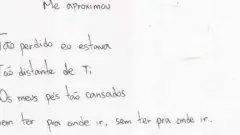 Me aproximou
Tão perdido eu estava
Tão distante de Ti
Os meus pés tão cansados
sem ter pra onde ir, sem ter pra onde ir.